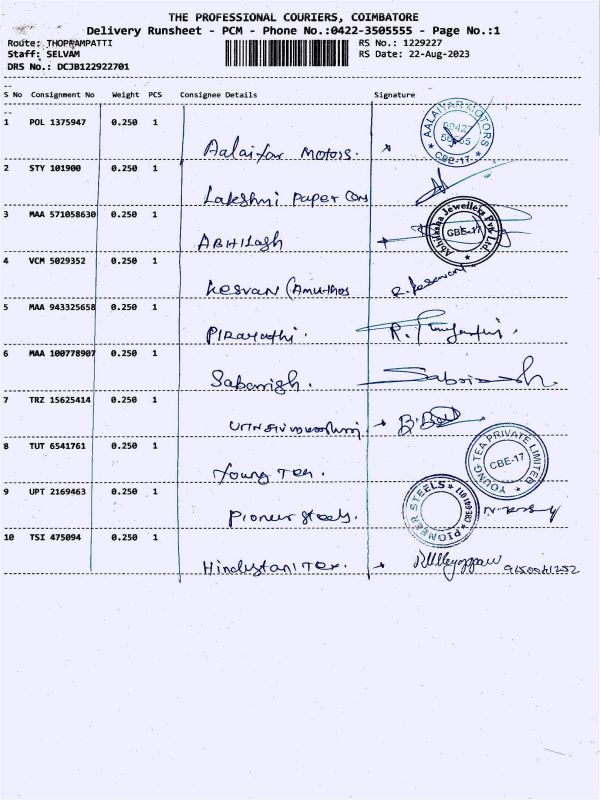 THE PROFESSIONAL COURIERS, COIMBATORE
Delivery Runsheet - PCM - Phone No.:0422-3505555 - Page No.:1
Route: THOPPAMPATTI RS No.: 1229227
Staff: SELVAM RS Date: 22-Aug-2023
DRS No.: DCJB122922701
S No Consignment No Weight PCS Consignee Details Signature
1 POL 1375947 0.250 1
Aalaiyar Motors.
AALAIYAR MOTORS
CBE-17
2 STY 101900 0.250 1
Lakshmi Paper Cons
3 MAA 571058630 0.250 1
ABHILash
Abhilasha Jewellers Pvt. Ltd.
CBE-17
4 VCM 5029352 0.250 1
Kesvan (Amuthas
R. Kesavan
5 MAA 943325658 0.250 1
R.
6 MAA 100778907 0.250 1
Sabarigh.
7 TRZ 15625414 0.250 1
8 TUT 6541761 0.250 1
Young Tea.
YOUNG TEA PRIVATE LIMITED
CBE-17
9 UPT 2169463 0.250 1
Pioneer Steels.
PIONEER STEELS
CBE-641 017
10 TSI 475094 0.250 1
Hindustani Tex.